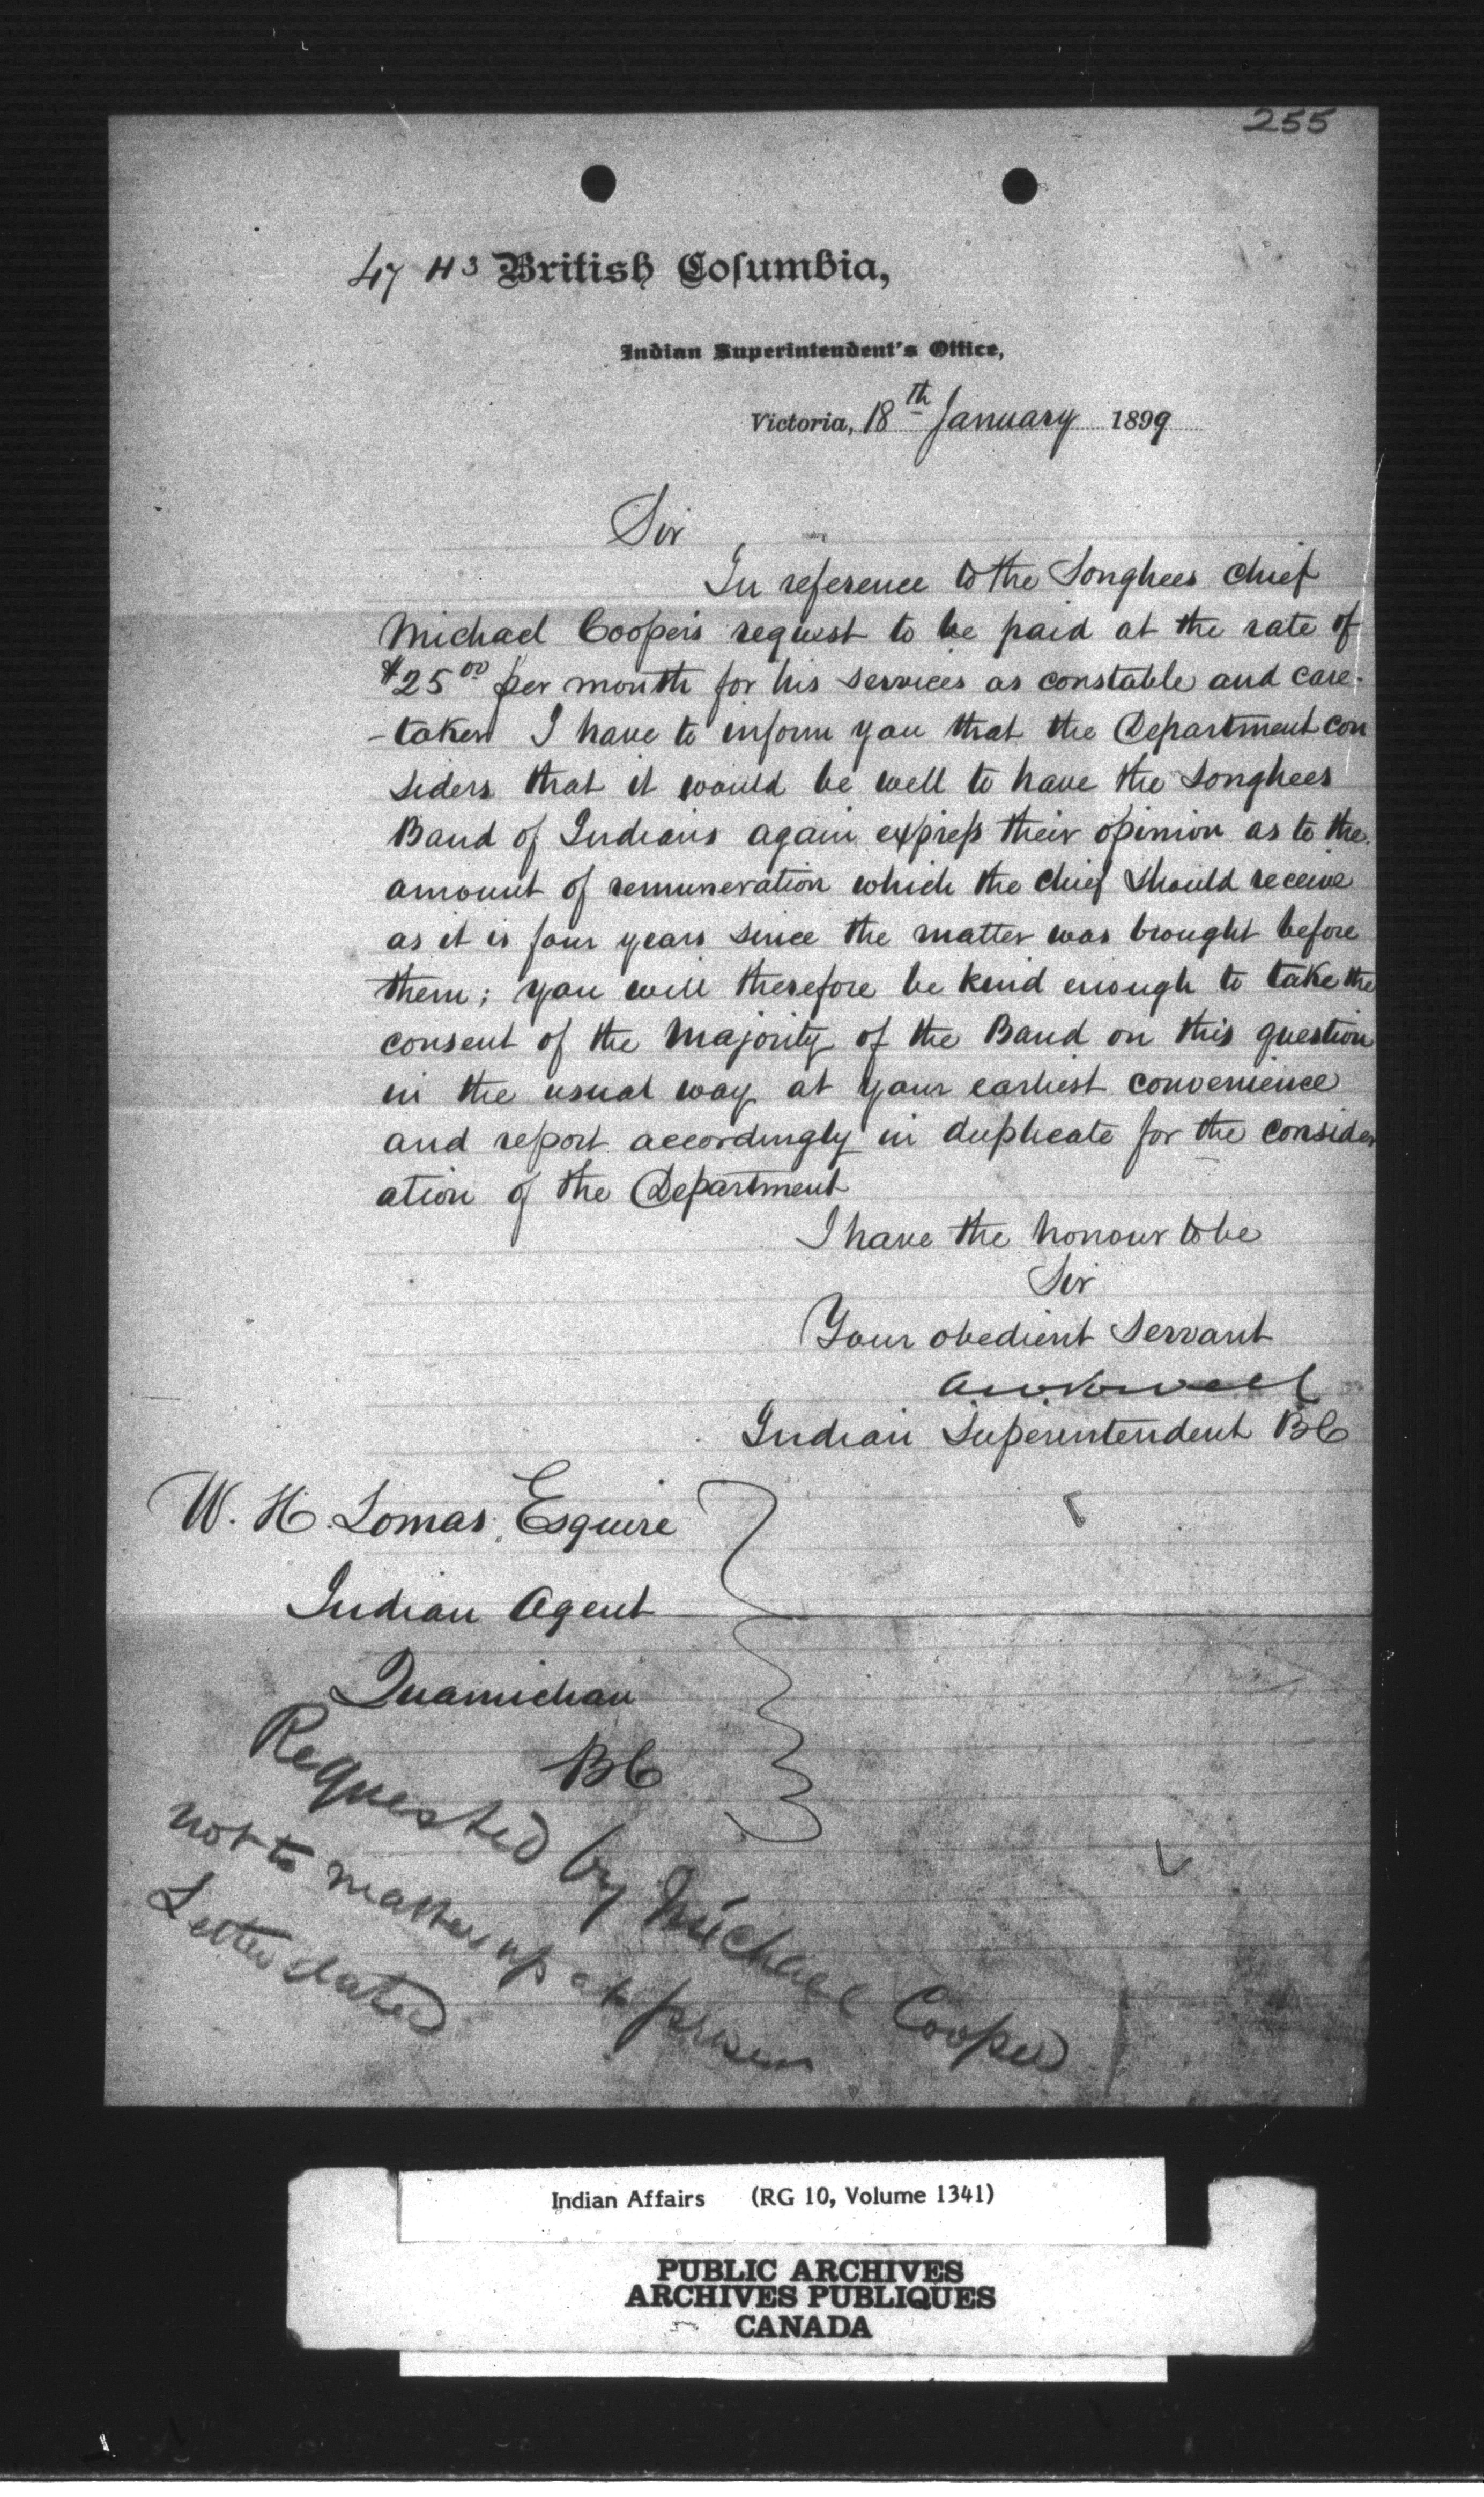 255
47 H3 British Columbia,
Indian Superintendent's Office,
Victoria, 18th January 1899
Sir
In reference to the Songhees Chief
Michael Cooper's request to be paid at the rate of
$25.00 per month for his services as constable and care-
-taker I have to inform you that the Department con
siders that it would be well to have the Songhees
Band of Indians again express their opinion as to the
amount of remuneration which the Chief should receive
as it is four years since the matter was brought before
them; you will therefore be kind enough to take the
consent of the majority of the Band on this question
in the usual way at your earliest convenience
and report accordingly in duplicate for the consider
ation of the Department
I have the honour to be
Sir
Your obedient Servant
A W Vowell
Indian Superintendent BC
W. H. Lomas, Esquire
Indian Agent
Quamichan
BC
Requested by Michael Cooper
not to matter up at present
Letter dated
Indian Affairs (RG 10, Volume 1341)
PUBLIC ARCHIVES
ARCHIVES PUBLIQUES
CANADA